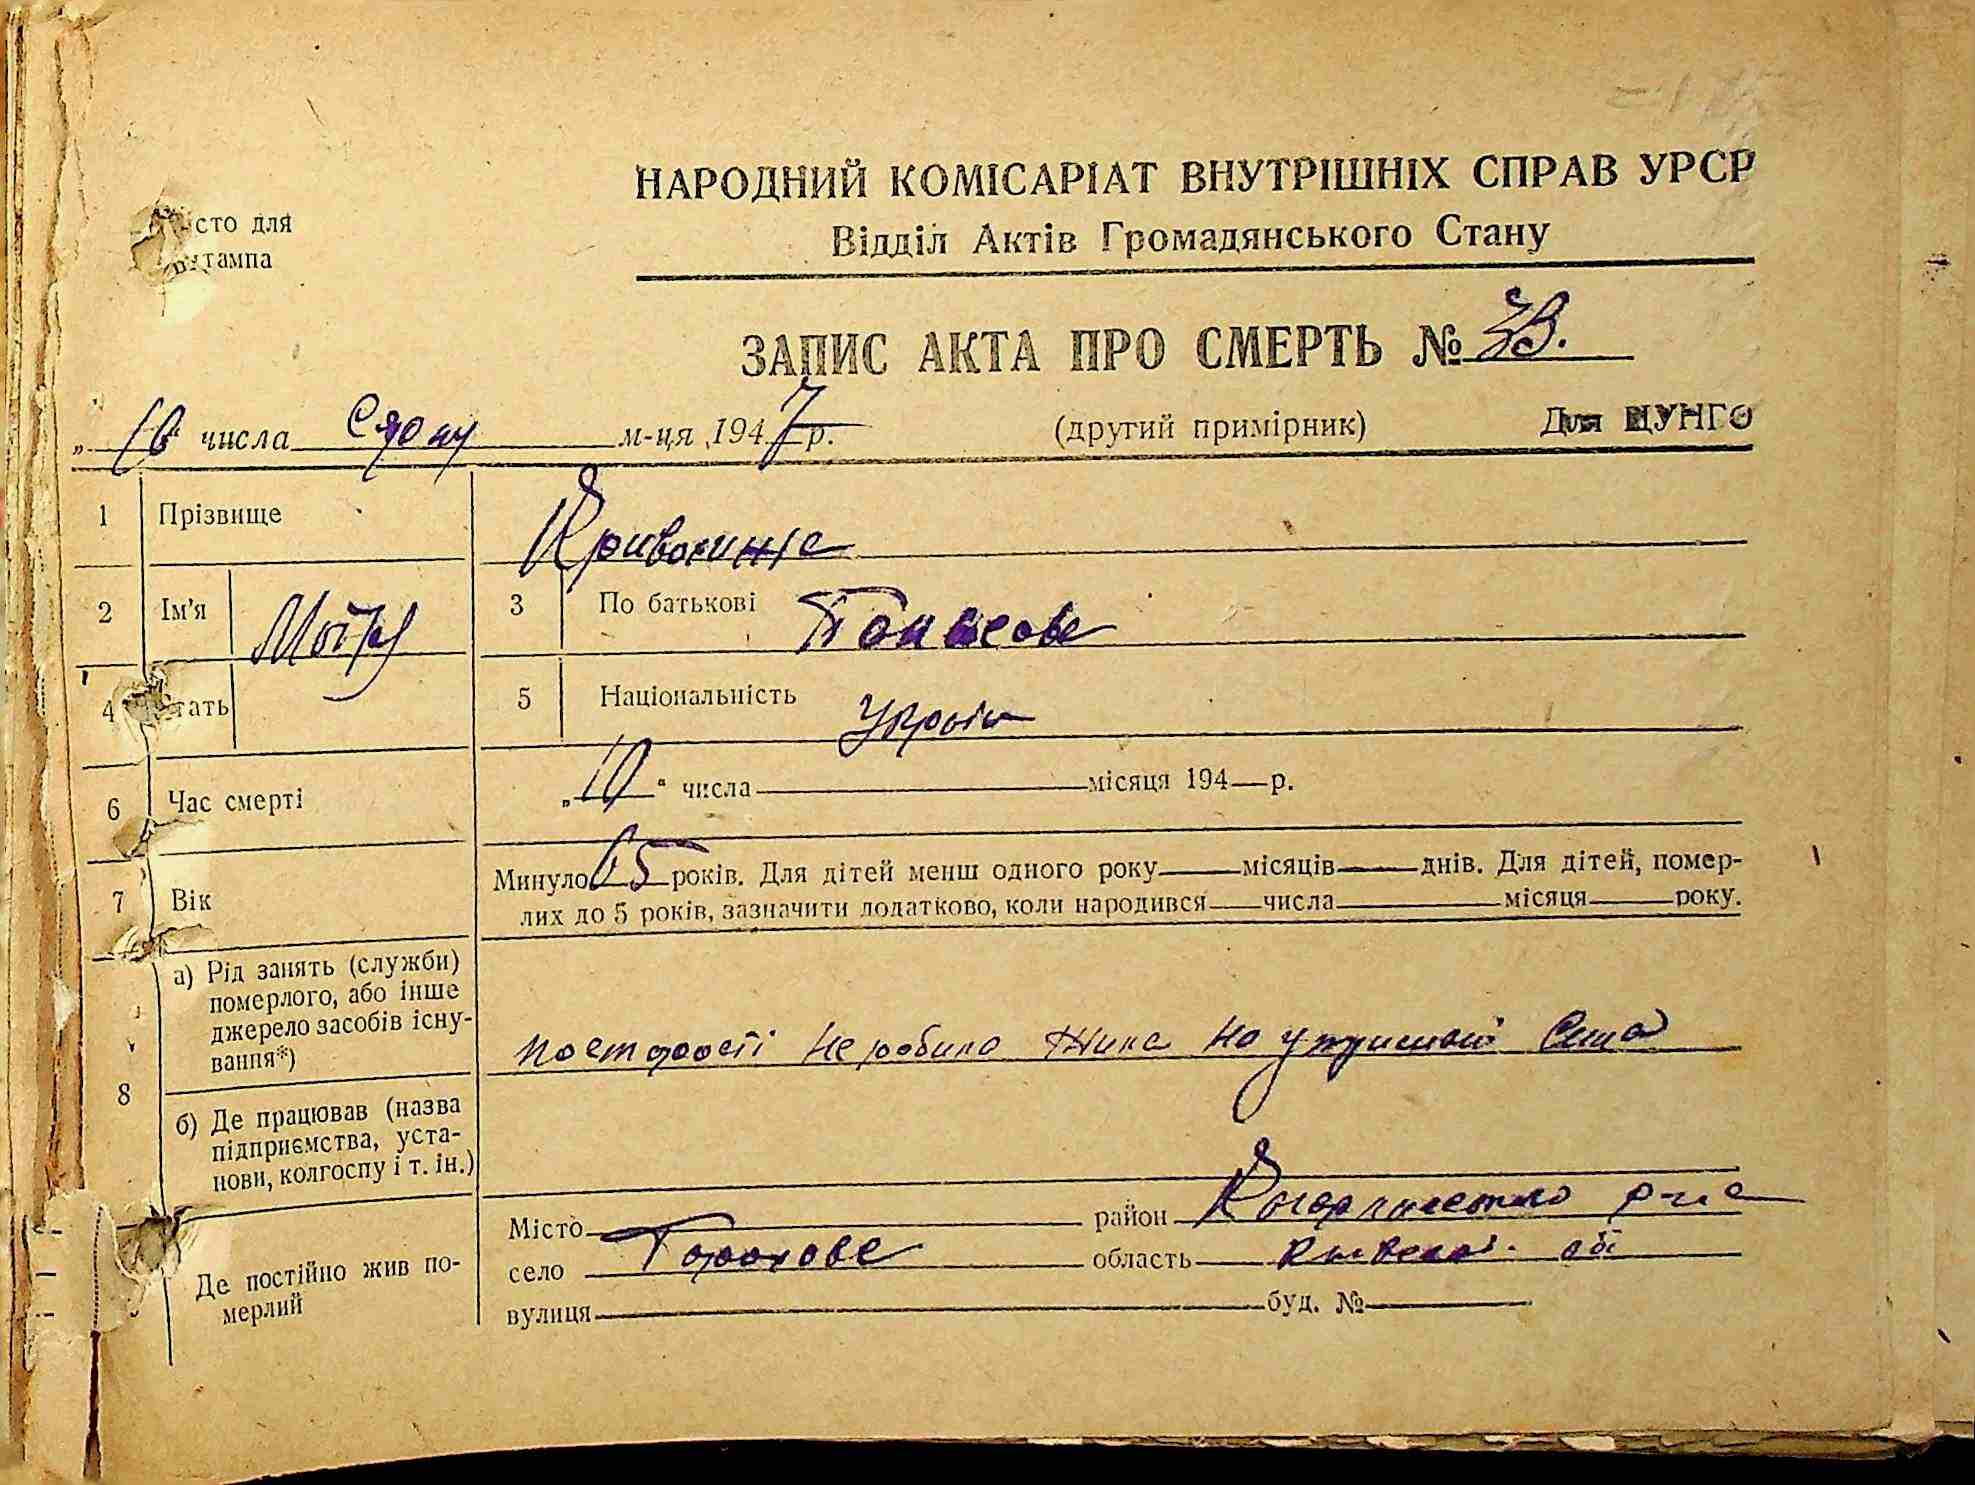 НАРОДНИЙ КОМІСАРІАТ ВНУТРІШНІХ СПРАВ УРСР
Відділ Актів Громадянського Стану
сто для
штампа
ЗАПИС АКТА ПРО СМЕРТЬ №
„ 10 " числа м-ця 1947 р. (другий примірник) Для ЦУНГО
1 Прізвище
2 Ім'я 3 По батькові
4 Стать 5 Національність Україн
6 Час смерті „ 10 " числа місяця 194 р.
7 Вік Минуло 65 років. Для дітей менш одного року місяців днів. Для дітей, помер-
лих до 5 років, зазначити додатково, коли народився числа місяця року.
8 а) Рід занять (служби)
померлого, або інше
джерело засобів існу-
вання*)
не робила на
б) Де працював (назва
підприємства, уста-
нови, колгоспу і т. ін.)
Де постійно жив по-
мерлий
Місто район
село область
вулиця буд. №